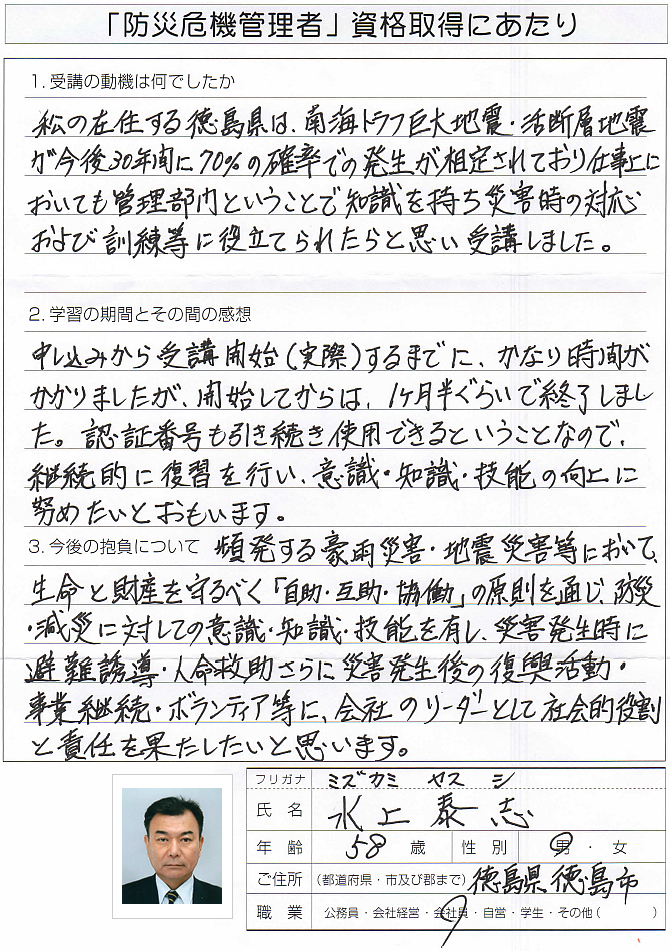 「防災危機管理者」資格取得にあたり
1. 受講の動機は何でしたか
私の在住する徳島県は、南海トラフ巨大地震・活断層地震
が今後30年間に70%の確率での発生が相定されており仕事上に
おいても管理部門ということで知識を持ち災害時の対応
および訓練等に役立てられたらと思い受講しました。
2. 学習の期間とその間の感想
申し込みから受講開始(実際)するまでに、かなり時間が
かかりましたが、開始してからは、1ヶ月半ぐらいで終了しまし
た。認証番号も引き続き使用できるということなので、
継続的に復習を行い、意識・知識・技能の向上に
努めたいとおもいます。
3. 今後の抱負について 頻発する豪雨災害・地震災害等において、
生命と財産を守るべく「自助・互助・協働」の原則を通じ、防災
・減災に対しての意識・知識・技能を有し、災害発生時に
避難誘導・人命救助さらに災害発生後の復興活動・
事業継続・ボランティア等に、会社のリーダーとして社会的役割
と責任を果たしたいと思います。
フリガナ ミズカミ ヤスシ
氏名 水上泰志
年齢 58歳 性別 男・女
ご住所 (都道府県・市及び郡まで) 徳島県徳島市
職業 公務員・会社経営・会社員・自営・学生・その他( )